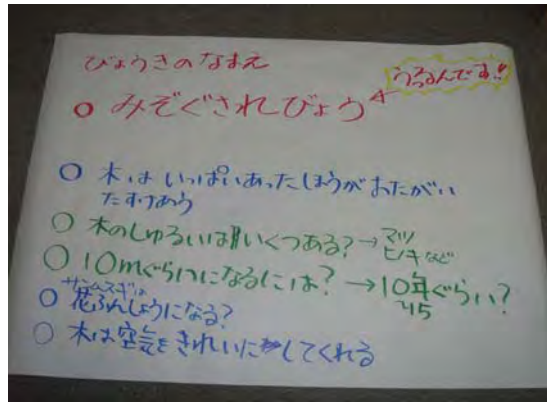 びょうきのなまえ
うつるんです!!
○ みぞぐされびょう
○ 木はいっぱいあったほうがおたがい
たすけあう
○ 木のしゅるいはいくつある?→マツ
ヒノキなど
○ 10mぐらいになるには?→10年ぐらい?
15
サンムスギは
○ 花ふんしょうになる?
○ 木は空気をきれいにしてくれる